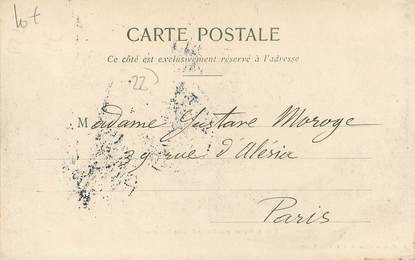 lot
CARTE POSTALE
Ce côté est exclusivement réservé à l'adresse
22)
Madame Gustave Moroge
29 rue d'Alésia
Paris